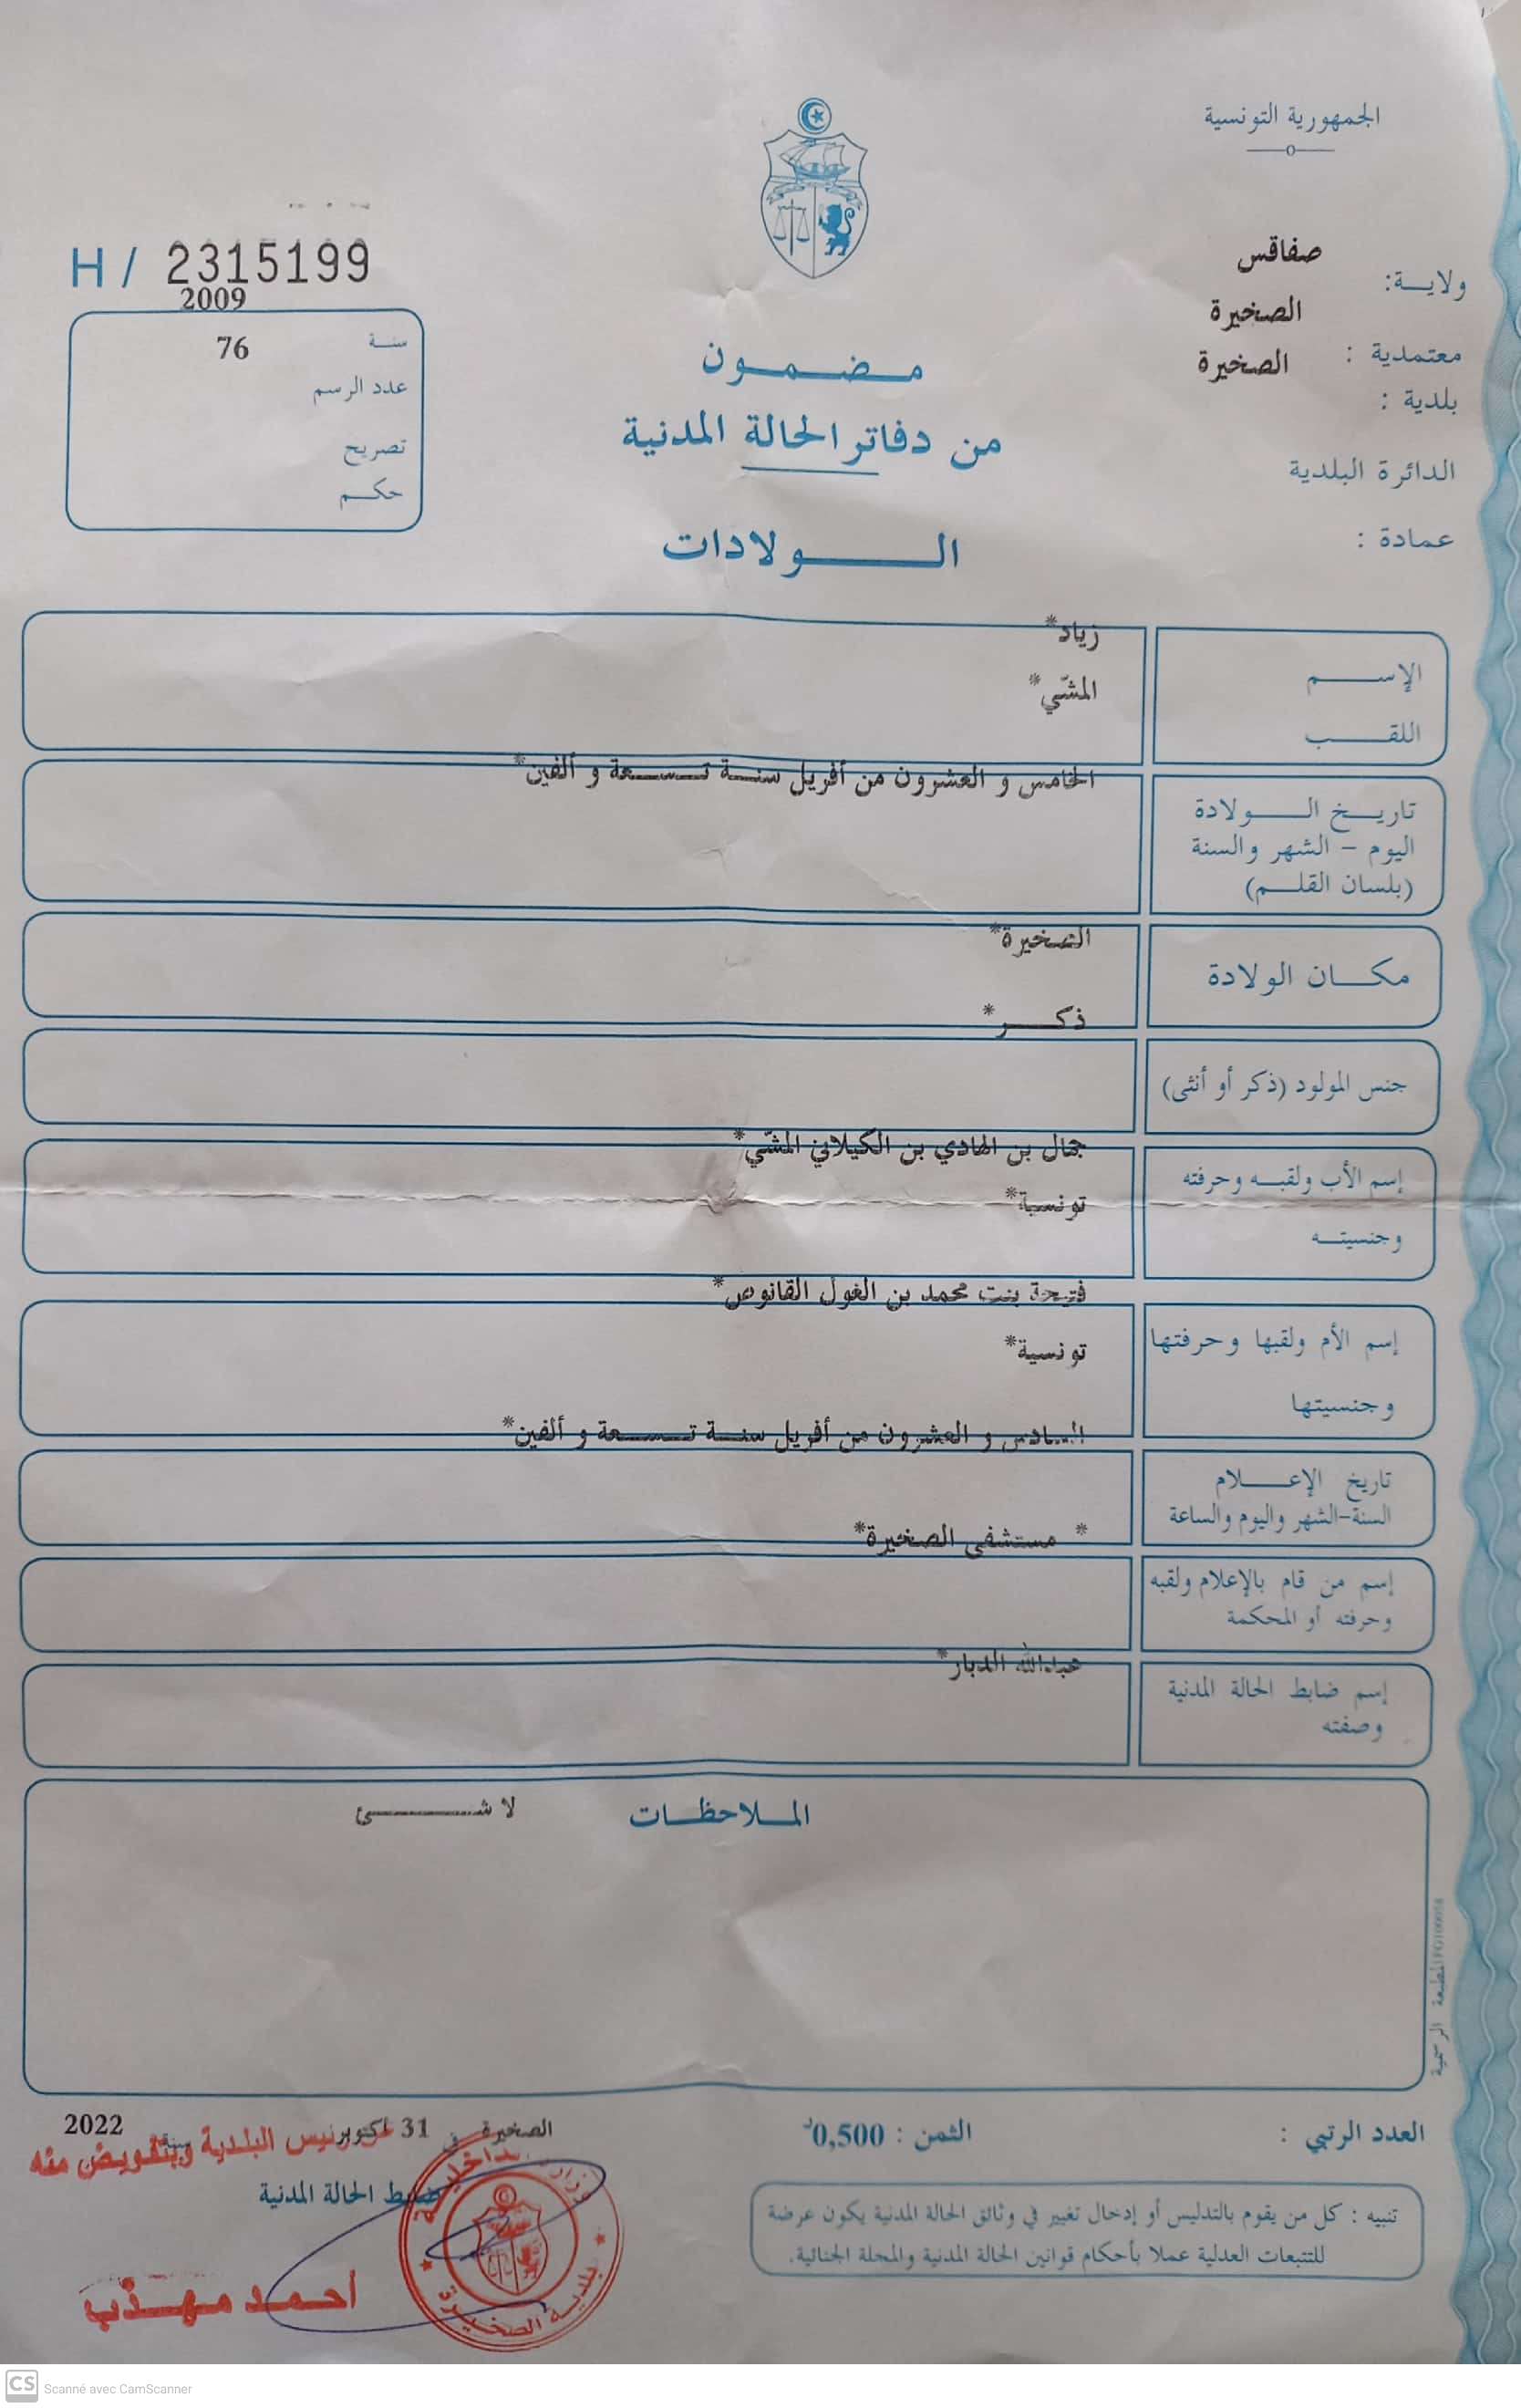 الجمهورية التونسية
ولايـــة: صفاقس
معتمدية : الصخيرة
بلدية : الصخيرة
الدائرة البلدية
عمادة :
H / 2315199
2009
سنـة 76
عدد الرسم
تصريح
حكـــم
مـــضـــمـــون
من دفاتر الحالة المدنية
الــــــولادات
الإســـــم زياد*
اللقـــــب المشّي*
الخامس و العشرون من أفريل سنـــة تـــســـعة و ألفين*
تاريــخ الـــــولادة
اليوم – الشهر والسنة
(بلسان القلـــم)
مكـــــان الولادة الصخيرة*
ذكـــــر*
جنس المولود (ذكر أو أنثى)
جمال بن الهادي بن الكيلاني المشّي*
إسم الأب ولقبـــه وحرفته
تونسية*
وجنسيتـــه
فتيحة بنت محمد بن الغول القانوص*
إسم الأم ولقبها وحرفتها
تونسية*
وجنسيتها
السادس و العشرون من أفريل سنـــة تـــســـعة و ألفين*
تاريخ الإعـــــلام
السنة-الشهر واليوم والساعة
* مستشفى الصخيرة*
إسم من قام بالإعلام ولقبه
وحرفته أو المحكمة
عبدالله الدبار*
إسم ضابط الحالة المدنية
وصفته
المـــلاحظـــات لا شـــــــئ
المطبعة الرسمية
العدد الرتبي :
الثمن : 0,500د
الصخيرة في 31 أكتوبر سنة 2022
عن رئيس البلدية وبتفويض منه
ضابط الحالة المدنية
أحـمـد مـهـذّب
بلدية الصخيرة
تنبيه : كل من يقوم بالتدليس أو إدخال تغيير في وثائق الحالة المدنية يكون عرضة
للتتبعات العدلية عملا بأحكام قوانين الحالة المدنية والمجلة الجنائية.
CS Scanné avec CamScanner